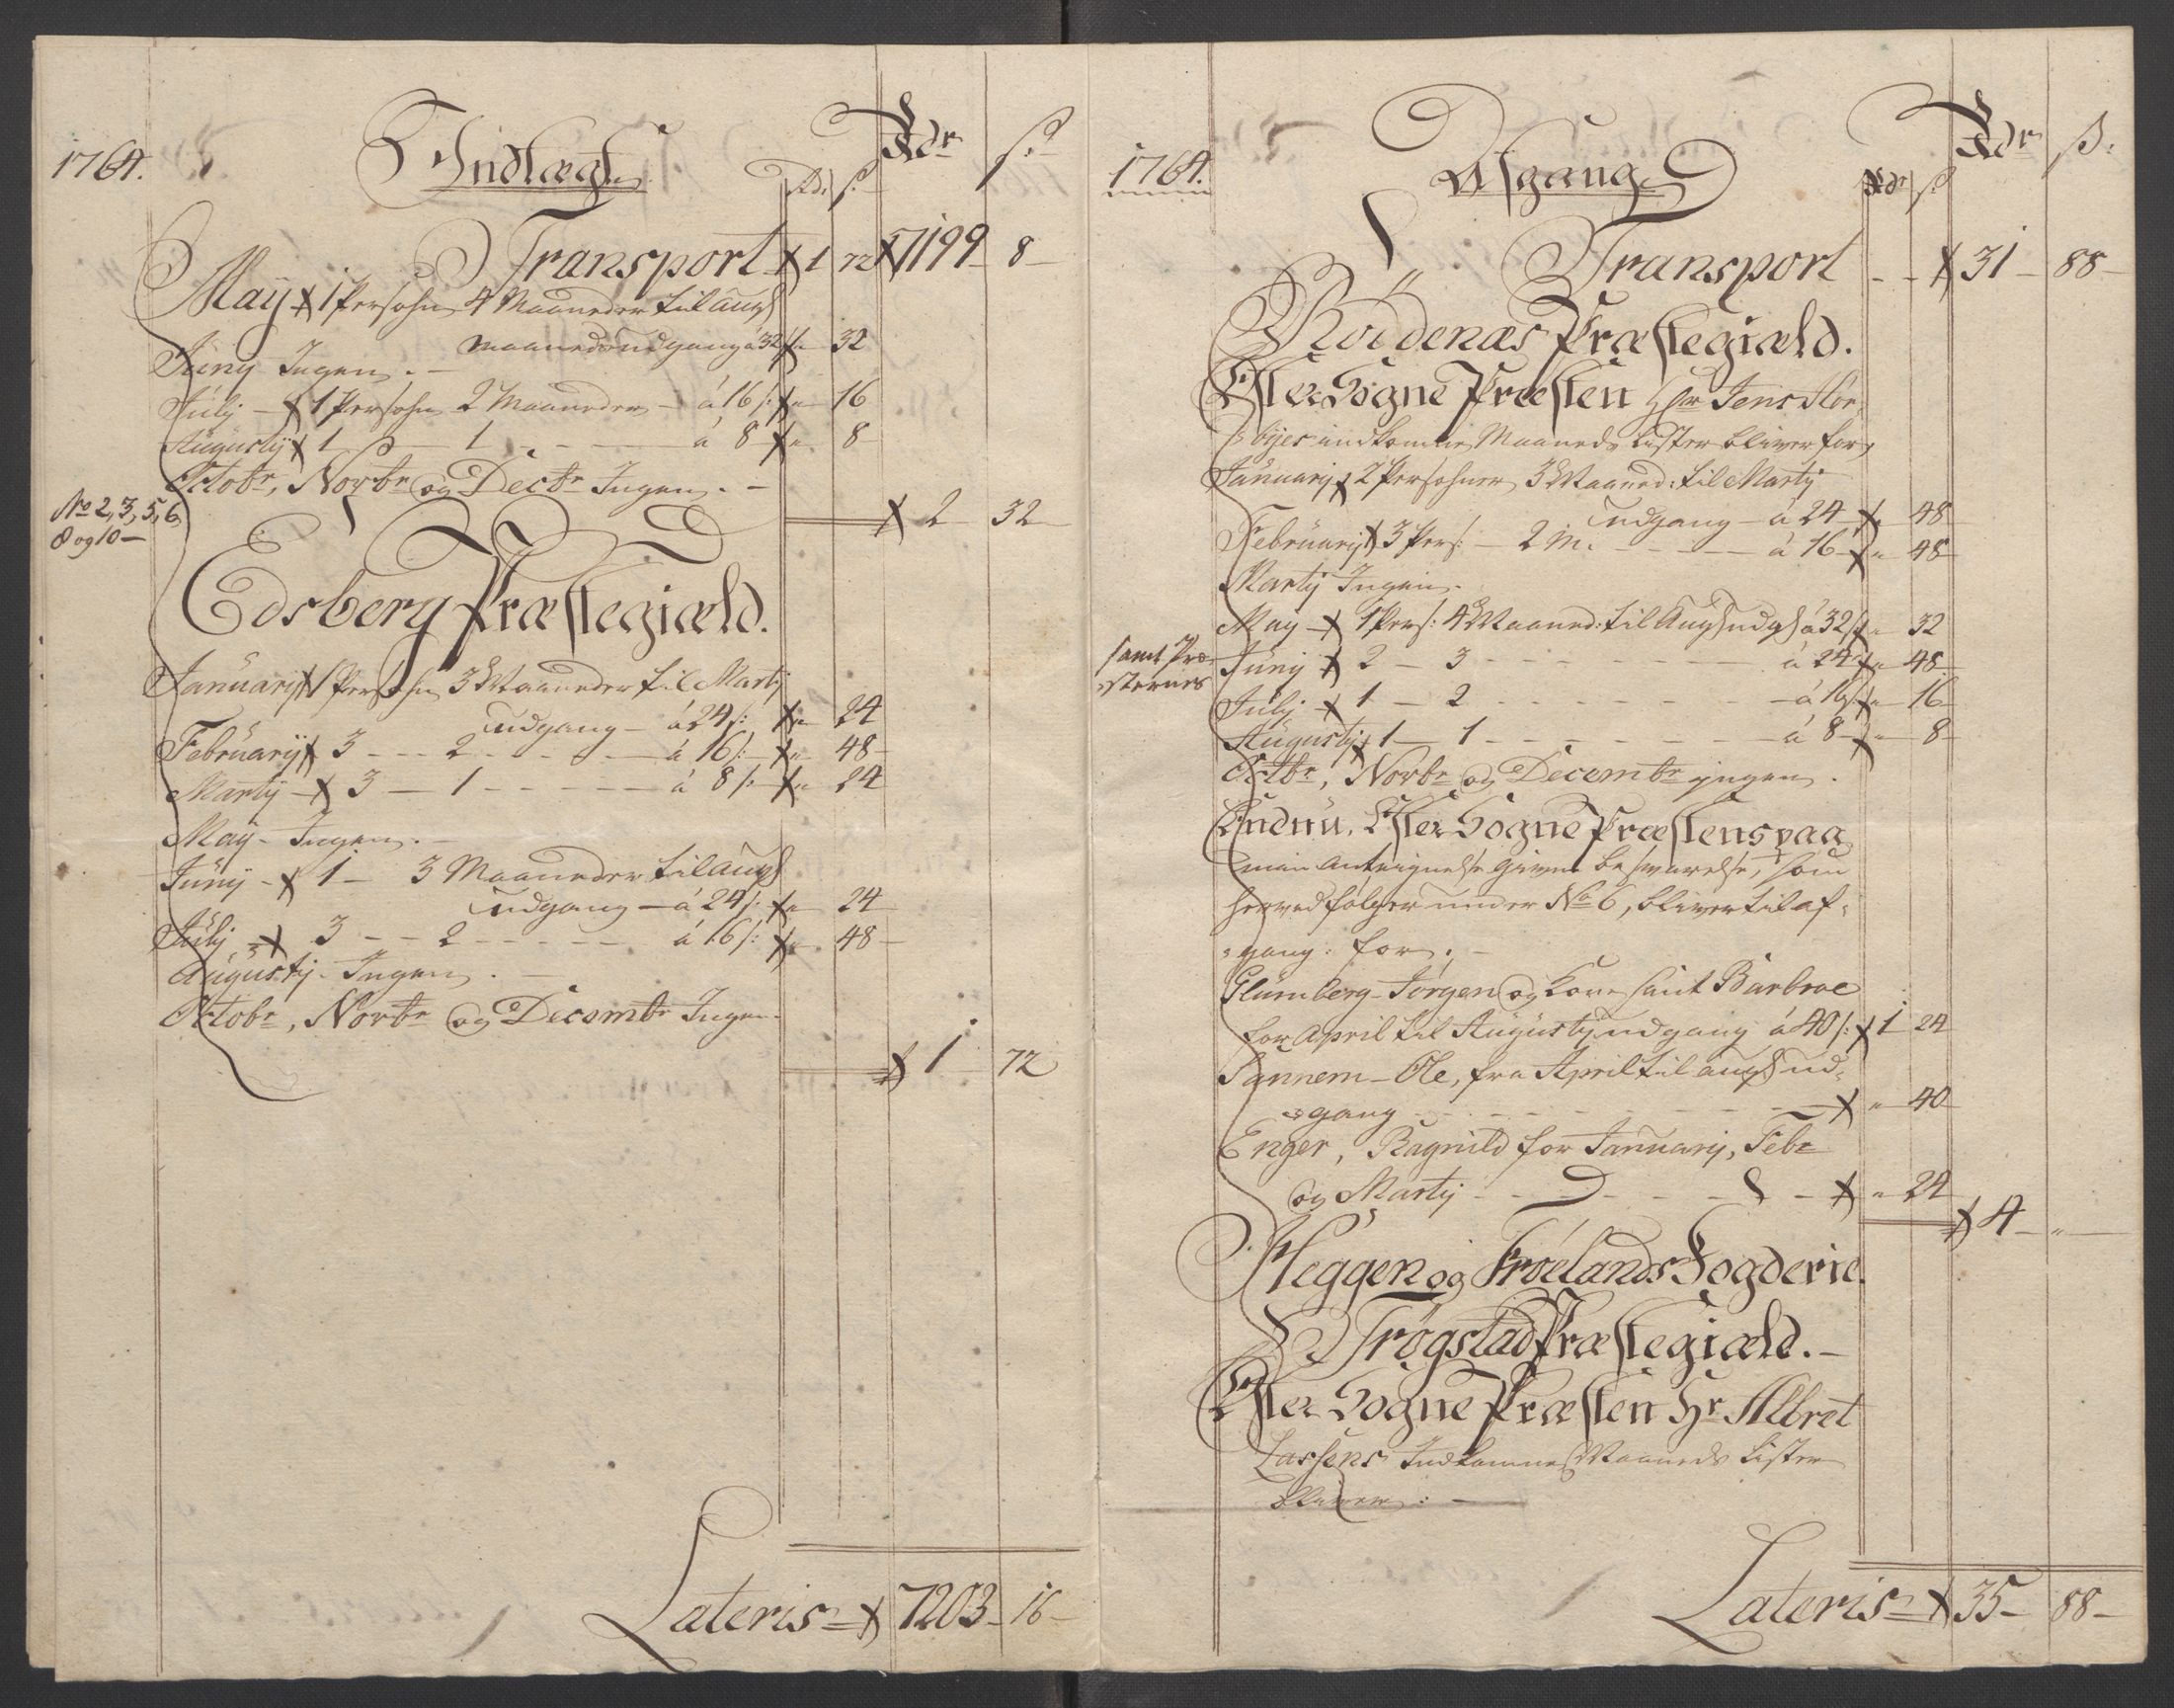 1764.
Indtægt
Rdr ß.
Rd. ß.
Transport 1 72 7199 8
May 1 Persohn 4 Maaneder til Aug:
Maaneds udgang á 32 ß. " 32
Juny Ingen.
July 1 Persohn 2 Maaneder á 16 ß. " 16
Augusty 1 1 á 8 " 8
Octobr, Novbr og Decbr Ingen.
2 32
No 2, 3, 5, 6,
8 og 10
Edsberg Præstegiæld.
January 1 Persohn 3 Maaneder til Marty
udgang á 24 ß: " 24
February 3 2 á 16 ß: " 48
Marty 3 1 á 8 ß. " 24
May Ingen.
Juny 1 3 Maaneder til Aug:
udgang á 24 ß. " 24
July 3 2 á 16 ß: " 48
Augusty Ingen.
Octobr, Novbr og Decembr Ingen.
1 72
Lateris 7203 16
1764.
Afgang
Rdr ß.
Rdr ß
Transport 31 88
Roedenæs Præstegiæld.
Efter Sogne Præsten Hr Jens
indkomne Maaneds Lister bliver for
January 2 Persohner 3 Maaned: til Marty
udgang á 24 " 48
February 3 Pers: 2 M. á 16 " 48
Marty Ingen.
May 1 Pers: 4 Maaned: til Aug: udg: á 32 ß " 32
samt Præ-
sternes
Juny 2 3 á 24 " 48
July 1 2 á 16 ß " 16
Augusty 1 1 á 8 " 8
Octbr, Novbr og Decembr ingen.
Endnu, Efter Sogne Præstens paa
min Antegnelse givne besvarelse, som
herved følger under No 6, bliver til af-
gang: for:
Glumberg Jørgen og Kone samt Barbroe
for April til Augusty udgang á 40 ß: 1 24
Sannem Ole, fra April til Aug: ud-
gang " 40
Enger, Ragnild for January, Febr
og Marty " 24
4 "
Heggen og Frøelands Fogderie.
Trøgstad Præstegiæld.
Efter Sogne Præsten Hr Albret
Lassens Indkomne Maaneds Lister
bliver:
Lateris 35 88